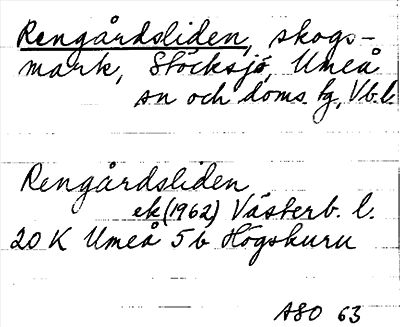 Rengårdsliden, skogs-
mark, Stöcksjö, Umeå
sn och doms. tg, Vb.l.
Rengårdsliden
ek (1962) Västerb. l.
20 K Umeå 5b Högskuru
ASO 63